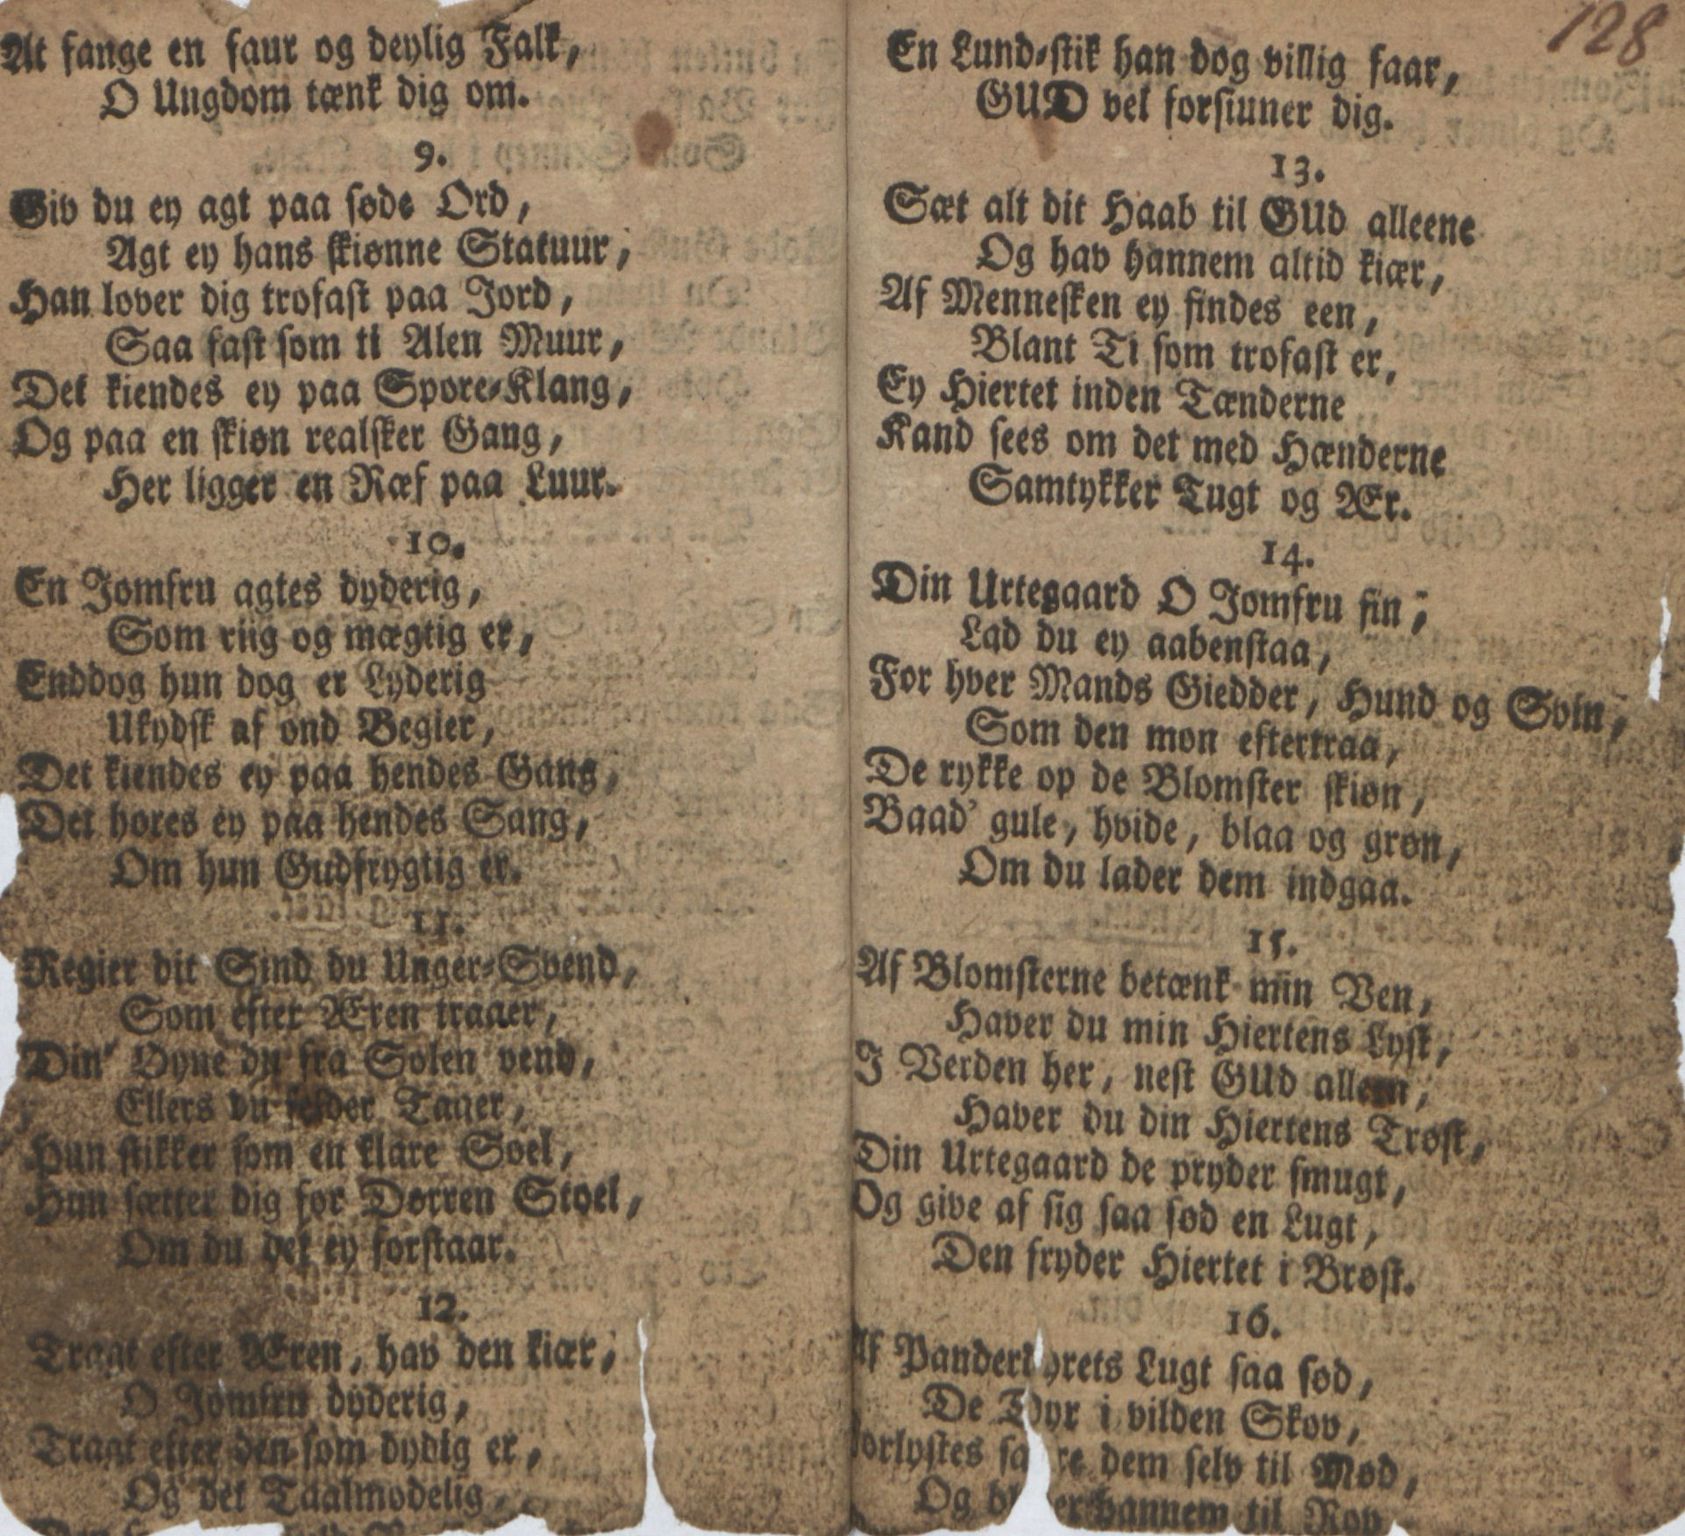 At fange en faur og deylig Falk,
O Ungdom tænk dig om.
9.
Giv du ey agt paa søde Ord,
Agt ey hans skiønne Statuur,
Han lover dig trofast paa Jord,
Saa fast som ti Alen Muur,
Det kiendes ey paa Spore-Klang,
Og paa en skiøn realsker Gang,
Her ligger en Ræf paa Luur.
10.
En Jomfru agtes dyderig,
Som riig og mægtig er,
Enddog hun dog er Lyderig
Ukydsk af ond Begier,
Det kiendes ey paa hendes Gang,
Det hores ey paa hendes Sang,
Om hun Gudfrygtig er.
11.
Regier dit Sind du Unger-Svend,
Som efter Æren traaer,
Din' Øyne du fra Solen vend,
Ellers du Taaer,
Hun stikker som en klare Soel,
Hun sætter dig for Dørren Stoel,
Om du det ey forstaar.
12.
Tragt efter Æren, hav den kiær,
O Jomfru dyderig,
Tragt efter den som dydig er,
Og det Taalmodelig,
128
En Lund-stik han dog villig faar,
GUD vel forsiuner dig.
13.
Sæt alt dit Haab til GUd alleene
Og hav hannem altid kiær,
Af Mennesken ey findes een,
Blant Ti som trofast er,
Ey Hiertet inden Tænderne
Kand sees om det med Hænderne
Samtykker Tugt og Ær.
14.
Din Urtegaard O Jomfru fin,
Lad du ey aabenstaa,
For hver Mands Giedder, Hund og Svin,
Som den mon eftertraa,
De rykke op de Blomster skiøn,
Baad' gule, hvide, blaa og grøn,
Om du lader dem indgaa.
15.
Af Blomsterne betænk min Ven,
Haver du min Hiertens Lyst,
I Verden her, nest GUd alleen,
Haver du din Hiertens Trøst,
Din Urtegaard de pryder smugt,
Og give af sig saa sød en Lugt,
Den fryder Hiertet i Brøst.
16.
Af Lugt saa sød,
De Dyr i vilden Skov,
dem selv til Mød,
Og hannem til Rov